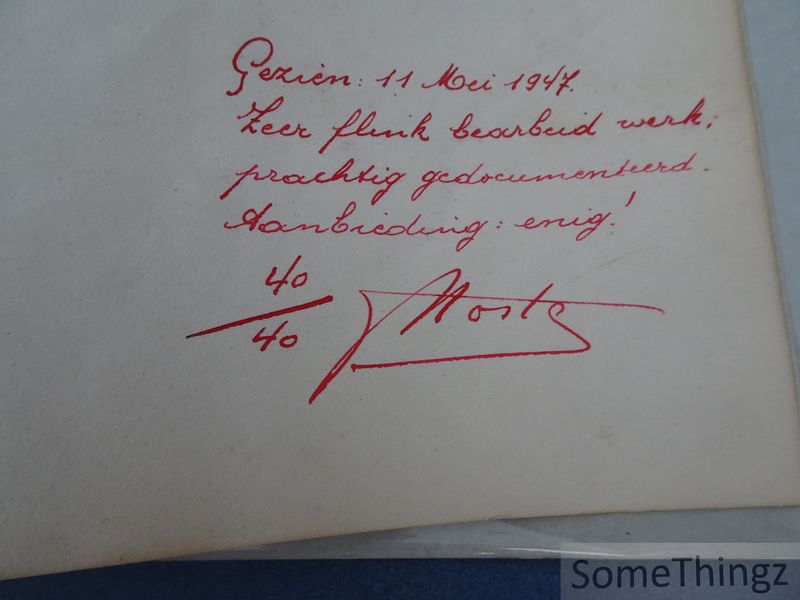 Gezien: 11 Mei 1947.
Zeer flink bearbeid werk;
prachtig gedocumenteerd.
Aanbieding: enig!
40
40
SomeThingz